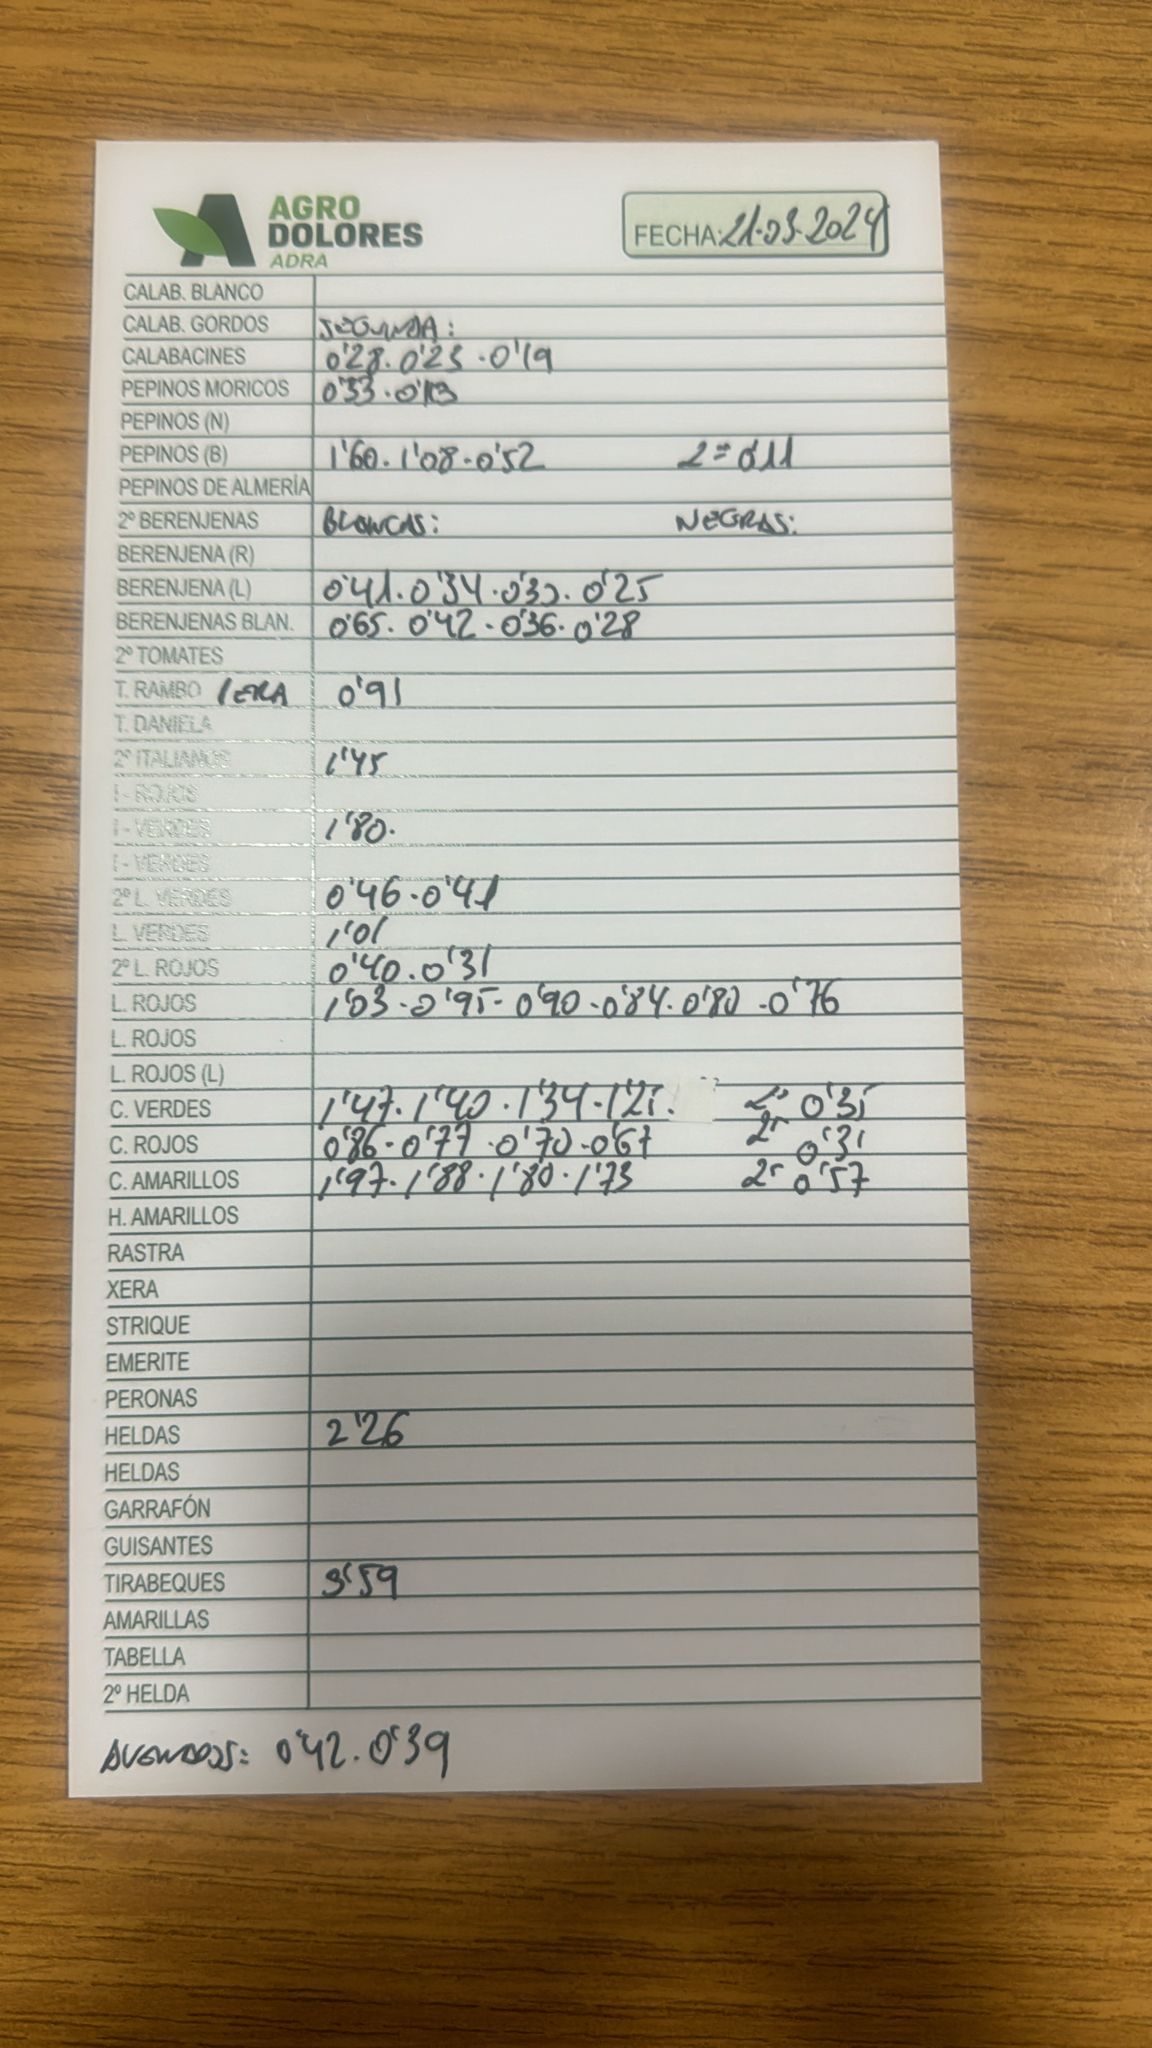 AGRO
DOLORES
ADRA
FECHA: 21-03-2024
CALAB. BLANCO
CALAB. GORDOS SEGUNDA:
CALABACINES 0'28. 0'23 . 0'19
PEPINOS MORICOS 0'33 . 0'13
PEPINOS (N)
PEPINOS (B) 1'60. 1'08. 0'52 2= 0'11
PEPINOS DE ALMERÍA
2º BERENJENAS BLANCAS: NEGRAS:
BERENJENA (R)
BERENJENA (L) 0'41. 0'34 . 0'30. 0'25
BERENJENAS BLAN. 0'65. 0'42 . 0'36. 0'28
2º TOMATES
T. RAMBO / ERA 0'91
T. DANIELA
2º ITALIANOS 1'45
I - ROJOS
I - VERDES 1'80.
I - VERDES
2º L. VERDES 0'46 . 0'41
L. VERDES 1'01
2º L. ROJOS 0'40. 0'31
L. ROJOS 1'03 . 0'95 . 0'90 . 0'84. 0'80 . 0'76
L. ROJOS
L. ROJOS (L)
C. VERDES 1'47. 1'40 . 1'34 . 2º
C. ROJOS 0'86 . 0'77 . 0'70 . 0'67 2º 0'31
C. AMARILLOS 1'97. 1'88 . 1'80 . 1'73 2º 0'57
H. AMARILLOS
RASTRA
XERA
STRIQUE
EMERITE
PERONAS
HELDAS 2'26
HELDAS
GARRAFÓN
GUISANTES
TIRABEQUES 3'59
AMARILLAS
TABELLA
2º HELDA
0'42. 0'39